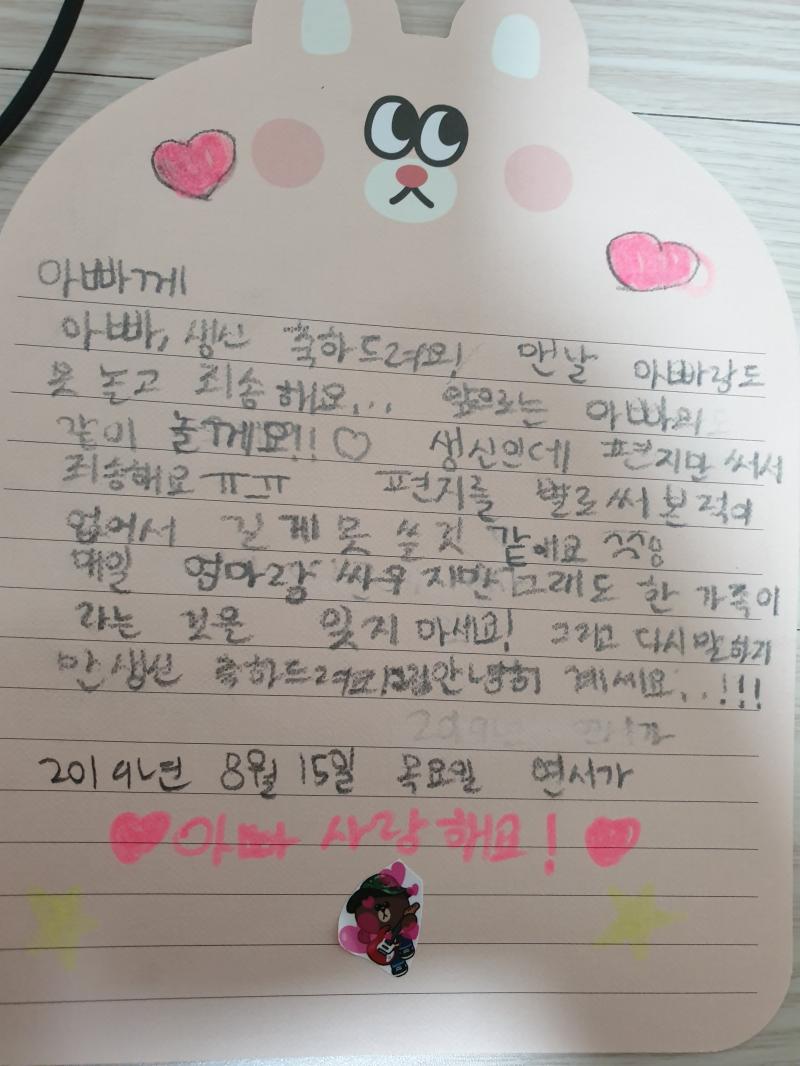 아빠께
아빠, 생신 축하드려요! 맨날 아빠랑도
못 놀고 죄송해요... 앞으로는 아빠와
같이 놀게요!! ♡ 생신인데 편지만 써서
죄송해요 ㅠㅠ 편지를 별로 써 본 적이
없어서 긴 게 못 쓸 것 같에요
매일 엄마랑 싸우지만 그래도 한 가족이
라는 것은 잊지 마세요! 그리고 다시 말하지
만 생신 축하드려요 안녕히 계세요..!!!
2019년 8월 15일 목요일 연서가
아빠 사랑해요!